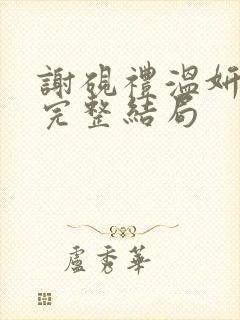 謝硯禮溫妍
完整結局
盧秀華